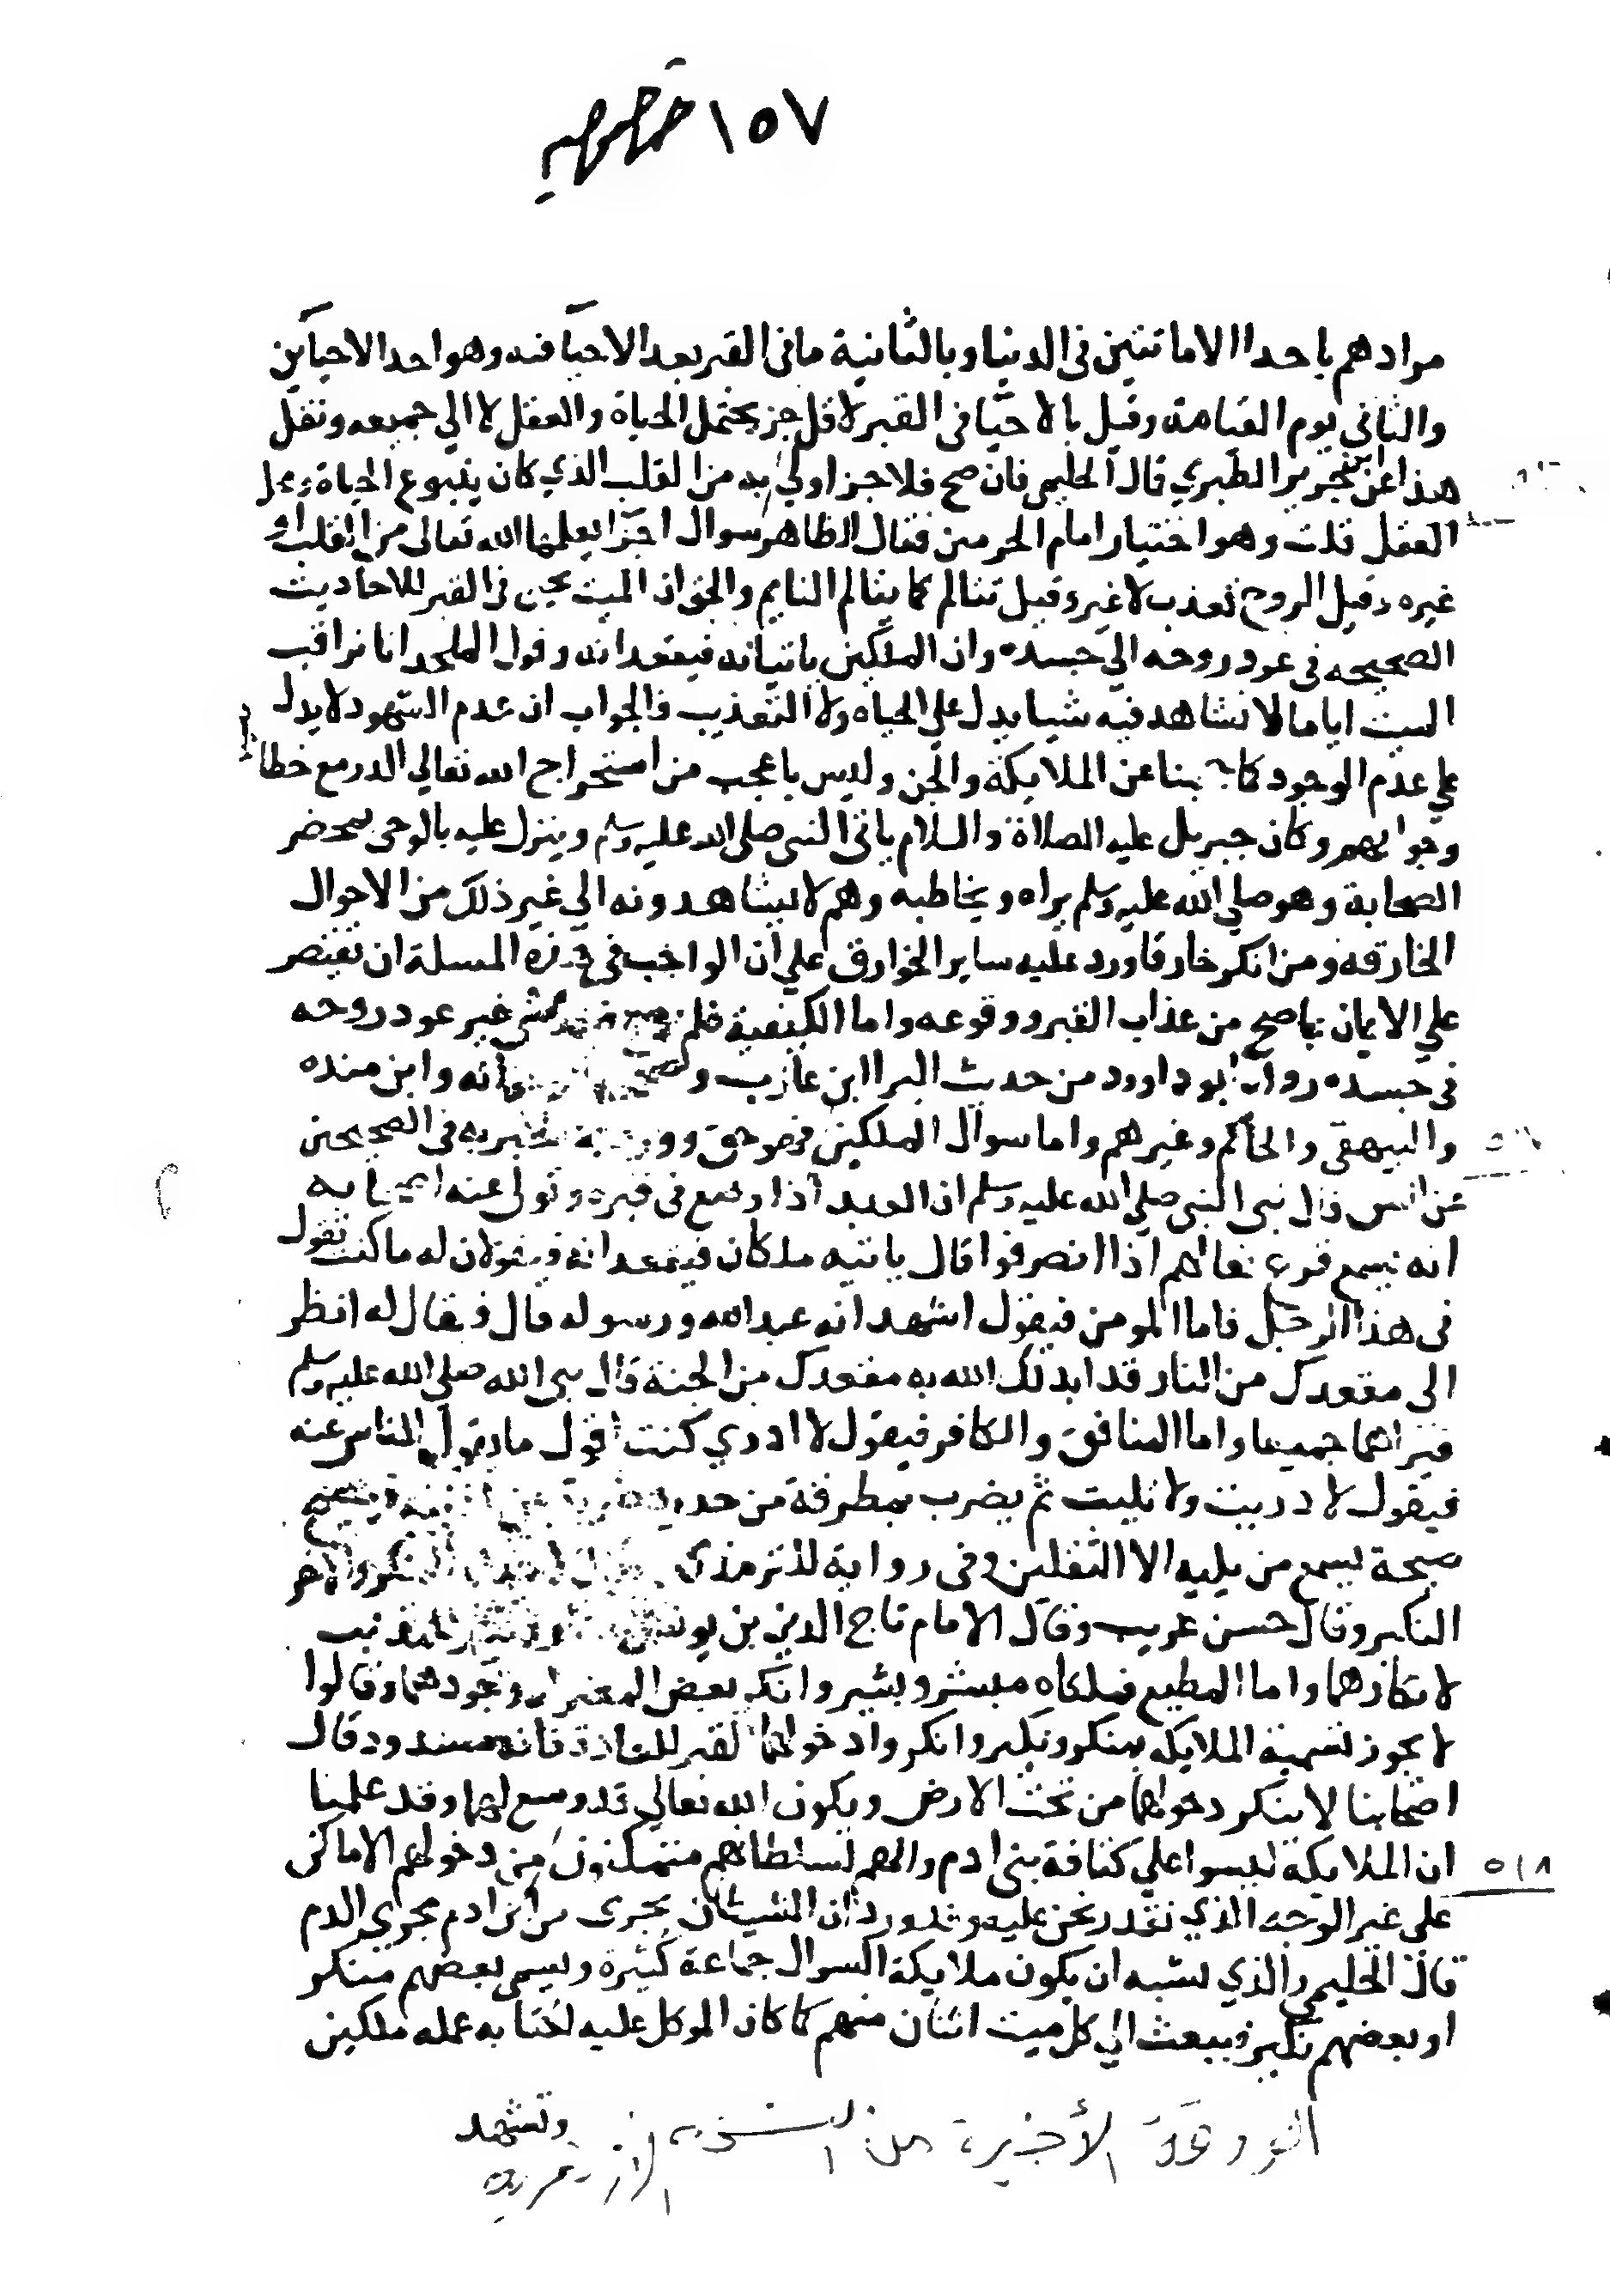 ١٥٧
مرادهم باحد الاماتتين فى الدنيا وبالثانية مافى القبر بعد الاحيآ فيه وهو احد الاحيآين
والثاني يوم القيامة وقيل بالاحيّا فى القبر لاقل جز يحتمل الحياة والعقل لا الي جميعه ونقل
هذا عن ابن جرير الطبري قال الحليمى فان صح فلا جز اولي به من القلب الذي كان ينبوع الحياة ومحل
العقل قلت وهو اختيار امام الحرمين فقال الظاهر سوال اجزا يعلمها الله تعالى من القلب او
غيره وقيل الروح تعذب لا غير وقيل تتالم كما يتالم النايم والحق ان الميت يحيى فى القبر للاحاديث
الصحيحه فى عود روحه الي جسده وان الملكين ياتيانه فيقعدانه وقول الملحد انا نراقب
الميت اياما لا نشاهد فيه شيا يدل علي الحياه ولا التعذيب فالجواب ان عدم الشهود لا يدل
علي عدم الوجود كما بنا عن الملايكة والجن وليس باعجب من استخراج الله تعالي الدر مع خطا
وجوابهم وكان جبريل عليه الصلاة والسلام ياتى النبى صلى الله عليه وسلم وينزل عليه بالوحى بمحضر
الصحابة وهو صلي الله عليه وسلم يراه ويخاطبه وهم لا يشاهدونه الي غير ذلك من الاحوال
الخارقه ومن انكر خارقا ورد عليه ساير الخوارق علي ان الواجب فى هذه المسلة ان نقتصر
علي الايمان بما صح من عذاب القبر ووقوعه واما الكيفية فلم يصح فيه شى غير عود روحه
فى جسده رواه ابو داوود من حديث البرا ابن عازب و وابن منده
والبيهقى والحاكم وغيرهم واما سوال الملكين فهو حق فى الصحيحين
عن انس قال نبى النبى صلي الله عليه وسلم ان العبد اذا وضع فى قبره وتولى عنه اصحابه
انه يسمع قرع نعالهم اذا انصرفوا قال ياتيه ملكان فيقعدانه فيقولان له ما كنت تقول
فى هذا الرجل فاما المومن فيقول اشهد انه عبد الله ورسوله قال فيقال له انظر
الى مقعدك من النار قد ابدلك الله به مقعدك من الجنة قال نبى الله صلي الله عليه وسلم
فيراهما جميعا واما المنافق والكافر فيقول لا ادري كنت اقول ما يقول الناس عنه
فيقول لا دريت ولا تليت ثم يضرب بمطرقة من حديد فيصيح
صيحة يسمع من يليه الا الثقلين وفى رواية للترمذى والاخر
النكير وقال حسن غريب وقال الامام تاج الدين بن يونس
لا نكارهما واما المطيع فملكاه مبشر وبشير وانكر بعض المعتزله وجودهما وقالوا
لا يجوز تسمية الملايكه بمنكر ونكير وانكروا دخولهما القبر فانه مسدود قال
اصحابنا لا ينكر دخولهما من تحت الارض ويكون الله تعالي قد وسع لهما وقد علمنا
ان الملايكة ليسوا علي كثافة بنى ادم وانهم لسلطانهم متمكنون من دخولهم الاماكن
على غير الوجه الذي نقدر نحن عليه وقد ورد ان الشيطان يجرى من ابن ادم مجري الدم
قال الحليمي والذي يشبه ان يكون ملايكة السوال جماعة كثيرة ويسمى بعضهم منكر
او بعضهم نكير فيبعث الي كل ميت اثنان منهم كما كان الموكل عليه لكتابة عمله ملكين
٥١٨
وتشهد
الورقة الأخيرة من النسخة الازهرية